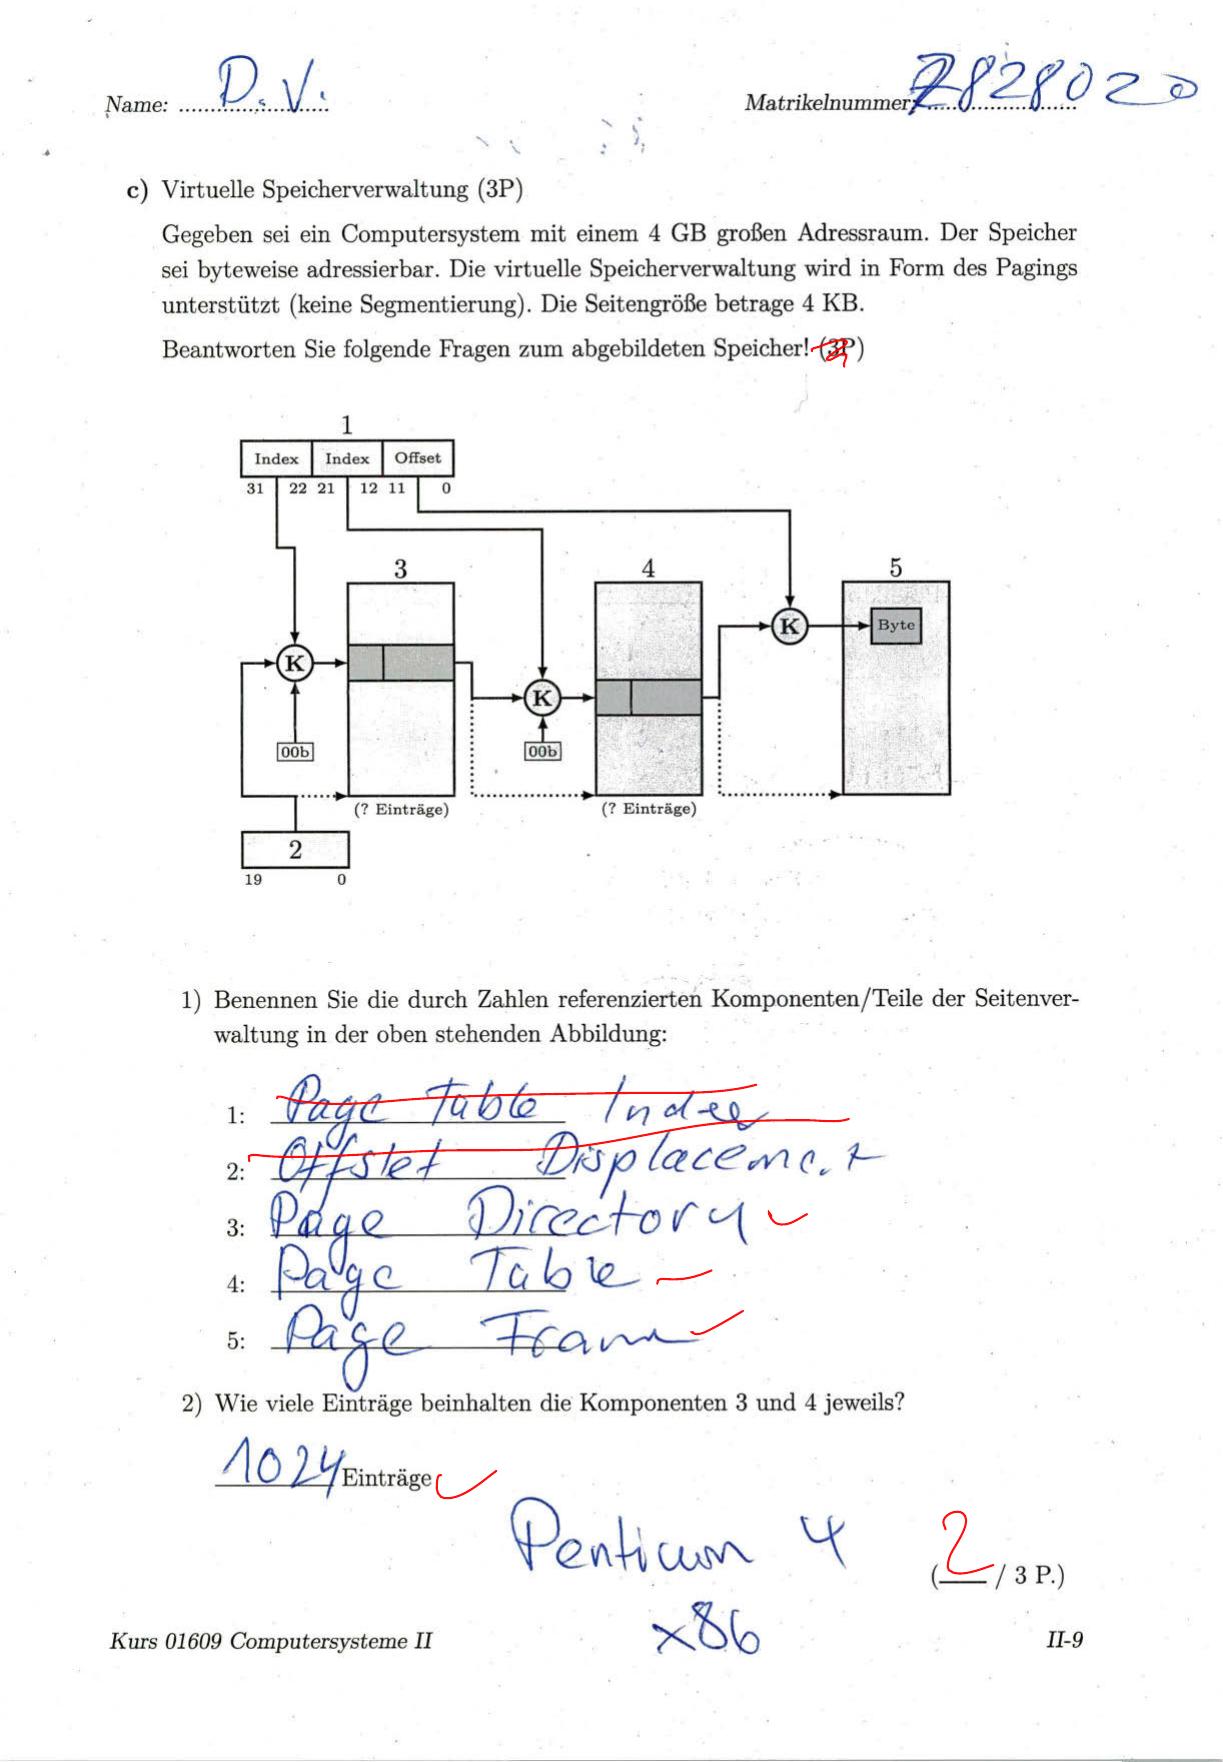 Name: D. V. Matrikelnummer: 7828020
c) Virtuelle Speicherverwaltung (3P)
Gegeben sei ein Computersystem mit einem 4 GB großen Adressraum. Der Speicher
sei byteweise adressierbar. Die virtuelle Speicherverwaltung wird in Form des Pagings
unterstützt (keine Segmentierung). Die Seitengröße betrage 4 KB.
Beantworten Sie folgende Fragen zum abgebildeten Speicher! (3P)
1
Index Index Offset
31 22 21 12 11 0
3 4 5
K Byte
K
K
00b 00b
(? Einträge) (? Einträge)
2
19 0
1) Benennen Sie die durch Zahlen referenzierten Komponenten/Teile der Seitenver-
waltung in der oben stehenden Abbildung:
1: Page Table Index
2: Offstet Displacement
3: Page Directory
4: Page Table
5: Page Frame
2) Wie viele Einträge beinhalten die Komponenten 3 und 4 jeweils?
1024 Einträge
Penticum 4
(2 / 3 P.)
x86
Kurs 01609 Computersysteme II II-9